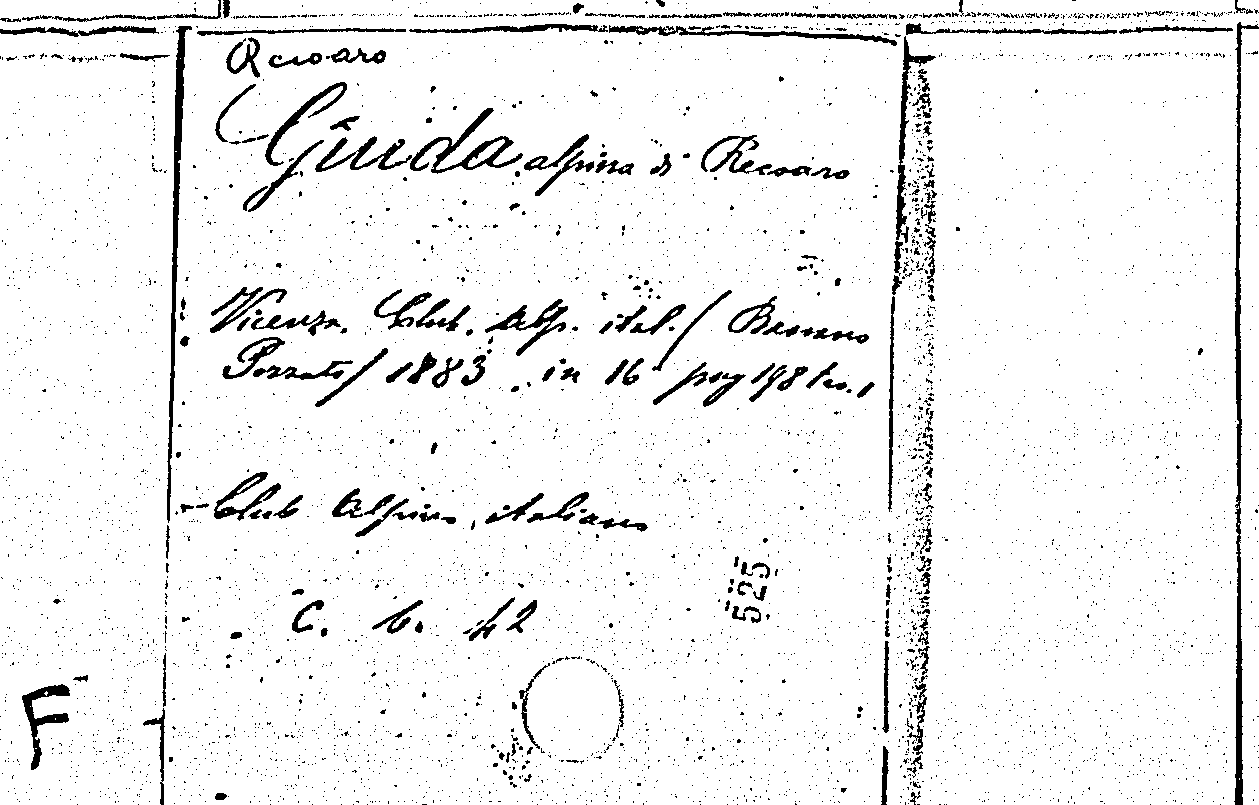 Recoaro
Guida alpina di Recoaro
Vicenza. Club. Alp. ital. / Bassano
Pozzato / 1883. in 16° pag 198 tav. 1
Club Alpino italiano
C. 6. 42
525
F